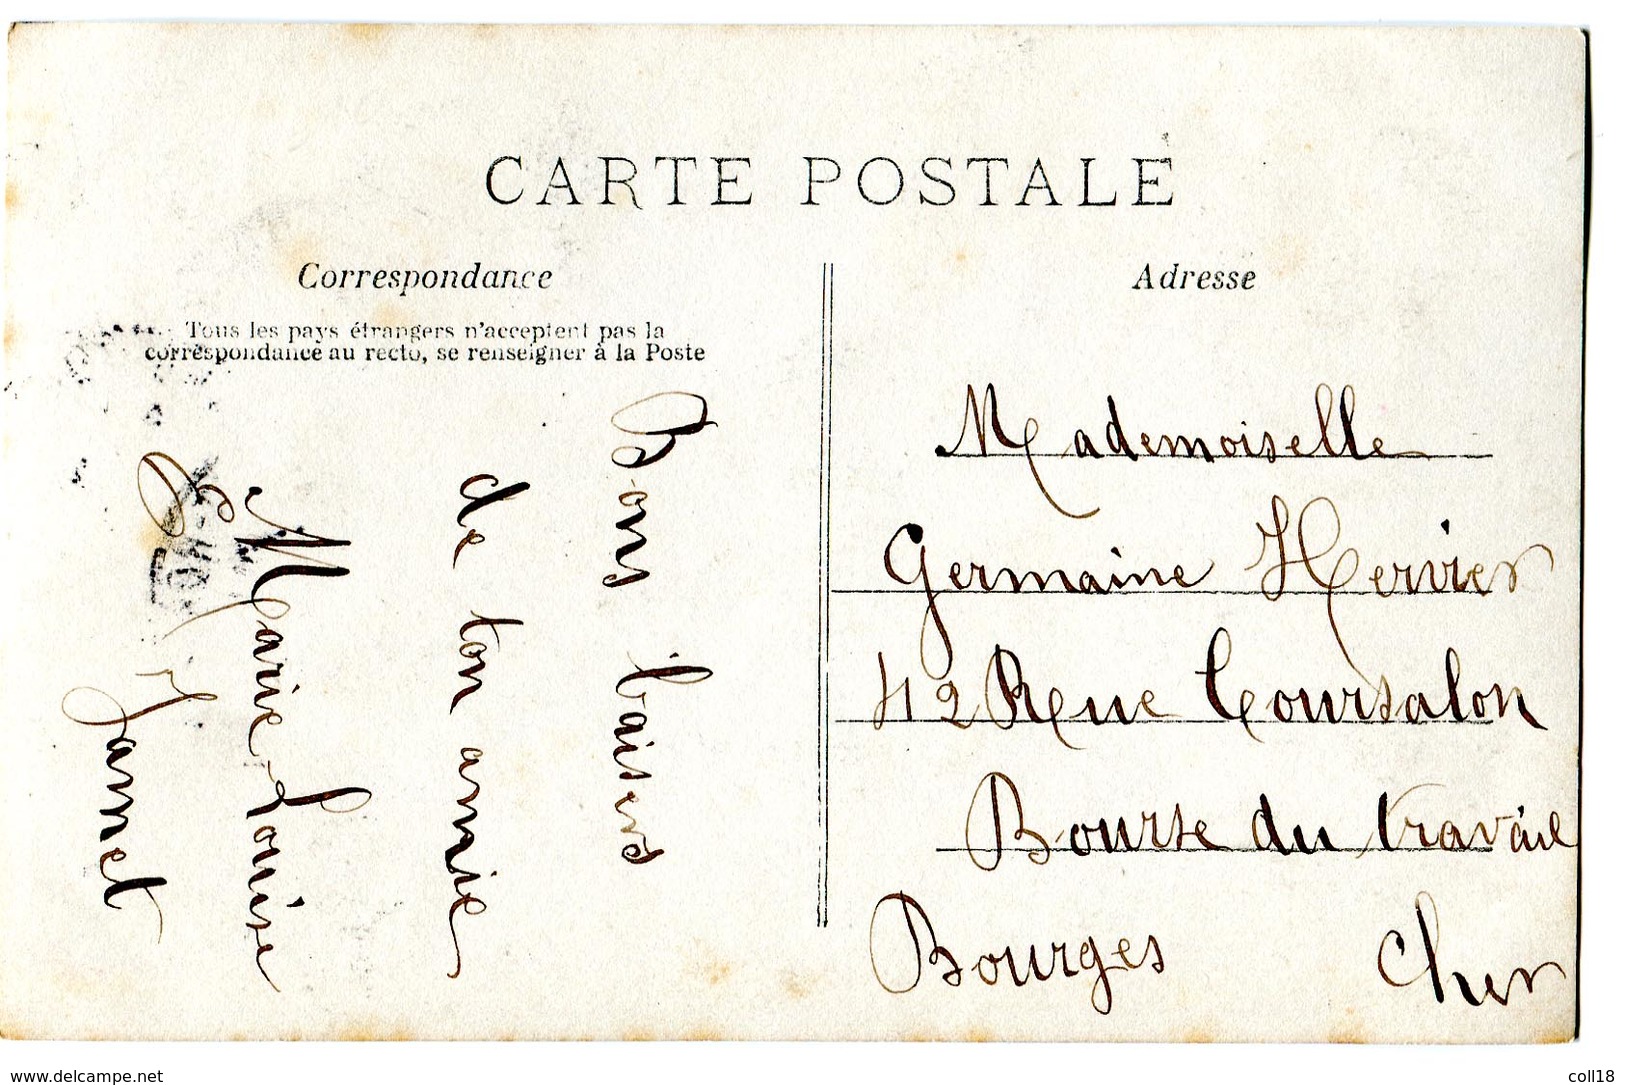 CARTE POSTALE
Correspondance
Tous les pays étrangers n'acceptent pas la
correspondance au recto, se renseigner à la Poste
Bons baisers
de ton amie
Marie-Louise
Jamet
Adresse
Mademoiselle
Germaine Hervier
42 Rue Coursalon
Bourse du travail
Bourges Cher
www.delcampe.net
coll18